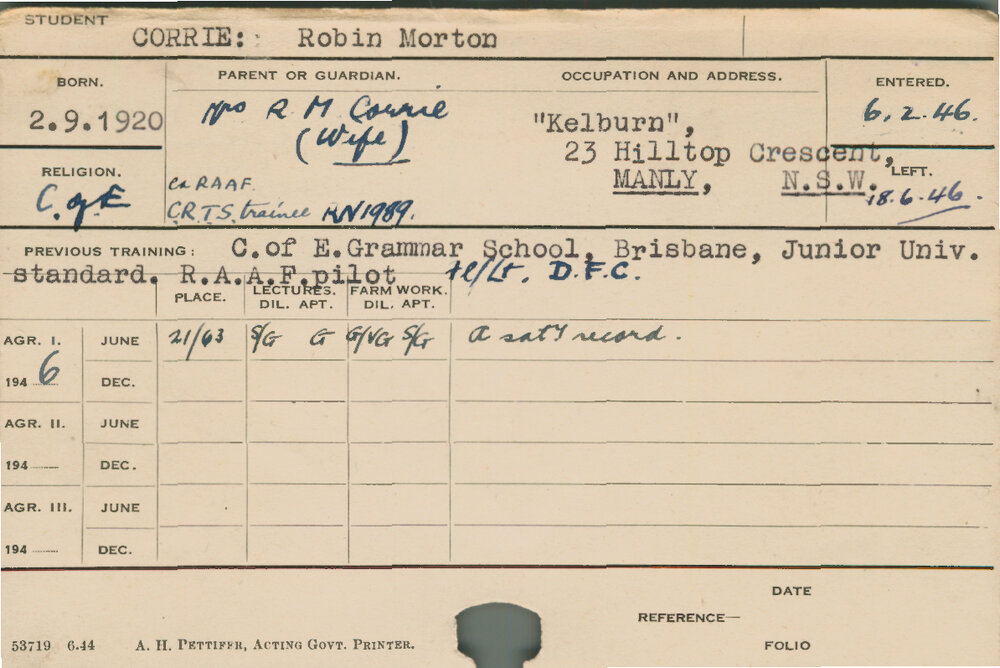 STUDENT
CORRIE: Robin Morton
BORN. PARENT OR GUARDIAN. OCCUPATION AND ADDRESS. ENTERED.
2.9.1920 Mrs R M Corrie "Kelburn", 6.2.46.
(Wife) 23 Hilltop Crescent,
RELIGION. MANLY, N.S.W. LEFT.
C. of E Ex RAAF. 18.6.46.
C.R.T.S. trainee RN1989.
PREVIOUS TRAINING: C.of E.Grammar School, Brisbane, Junior Univ.
standard. R.A.A.F.pilot Fl/Lt. D.F.C.
PLACE. LECTURES. FARM WORK.
DIL. APT. DIL. APT.
AGR. I. JUNE 21/63 S/G G G/VG S/G A sat'y record.
194 6 DEC.
AGR. II. JUNE
194 DEC.
AGR. III. JUNE
194 DEC.
DATE
REFERENCE—
FOLIO
53719 6.44 A. H. PETTIFER, ACTING GOVT. PRINTER.